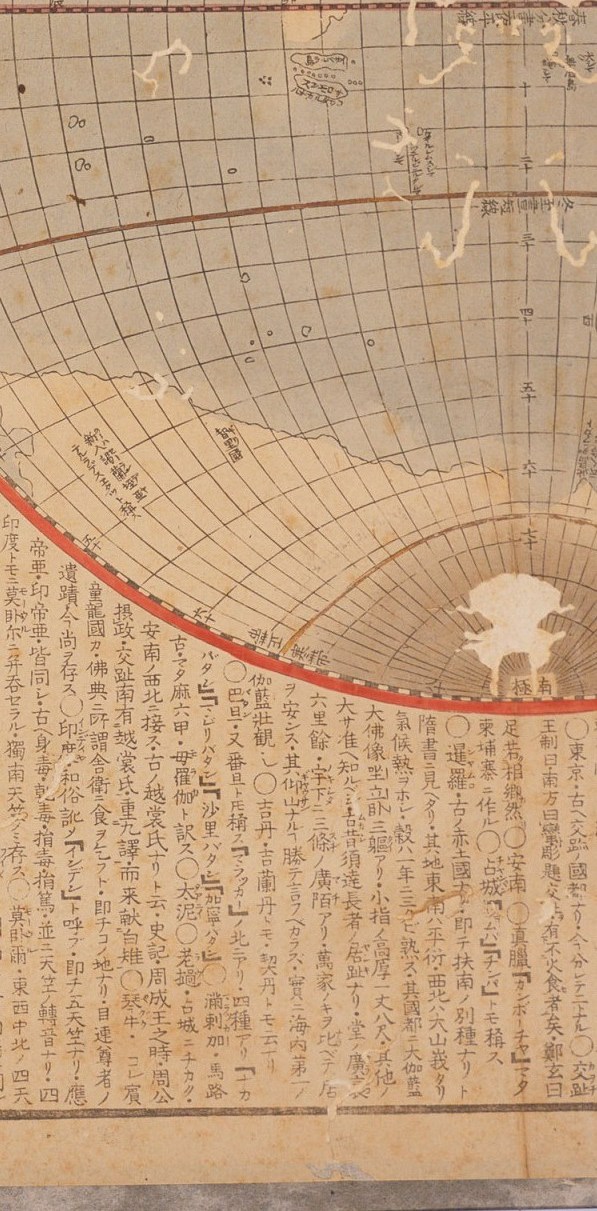 春秋分晝夜平線
十
二十
冬至晝短線
三十
四十
五十
六十
七十
南極
智里國
五十
六十
○東京・古ヘ交趾ノ國都ナリ・今分レテ二ナル○交趾
王制曰南方曰蠻彫題交趾有不火食者矣・鄭玄曰
足若相郷然○安南○真臘『カンボーチヤ』マタ
柬埔寨ニ作ル○占城『ジャムパ』『チンパ』トモ稱ス
○暹羅・古ノ赤土國ナリ・即チ扶南ノ別種ナリト
隋書ニ見ヘタリ・其地東南ハ平衍・西北ハ大山峩タリ
氣候熱ヲホシ・穀ハ一年ニ三タビ熟ス・其國都ニ大伽藍
大佛像坐立卧三軀アリ・小指ノ高厚一丈八尺・其他ノ
大サ准ヘ知ルベシ古昔須達長者ノ居趾ナリ・堂ノ廣袤
六里餘・宇下ニ三條ノ廣陌アリ・萬家ノキヲ比ベテ居
ヲ安ンス・其仰山ナルヿ勝テ言フヘカラス・實ニ海内第一ノ
伽藍壯觀
○吉丹・吉蘭丹トモ・契丹トモ云ナリ
○巴旦・又番旦トモ稱ス『マラッカー』ノ北ニアリ・四種アリ
バタン』『シリバタン』『沙里バタン』『加寧バタン』○滿剌加・馬路
古・マタ麻六甲・母羅伽ト訳ス○大泥○老撾・占城ニチカク・
安南ノ西北ニ接ス・古ノ越裳氏ナリト云・史記・周成王之時・周公
摂政・交趾南有越裳氏重九譯・而来献白雉○琴牛・コレ賓
童龍國カ・佛典ニ所謂舎衛ニ食ヲ乞フト・即チコノ地ナリ・目連尊者ノ
遺蹟・今尚ヲ存ス○印度・和俗訛ノ『インデン』ト呼ブ・即チ五天竺ナリ・應
帝亜・印帝亜・皆同シ・古ヘ身毒・乾毒・捐毒・捐篤・並ニ天竺ノ轉音ナリ・四
印度トモニ莫卧尓ニ并呑セラル・獨南天竺ノミ存ス○莫卧爾・東西中北ノ四天